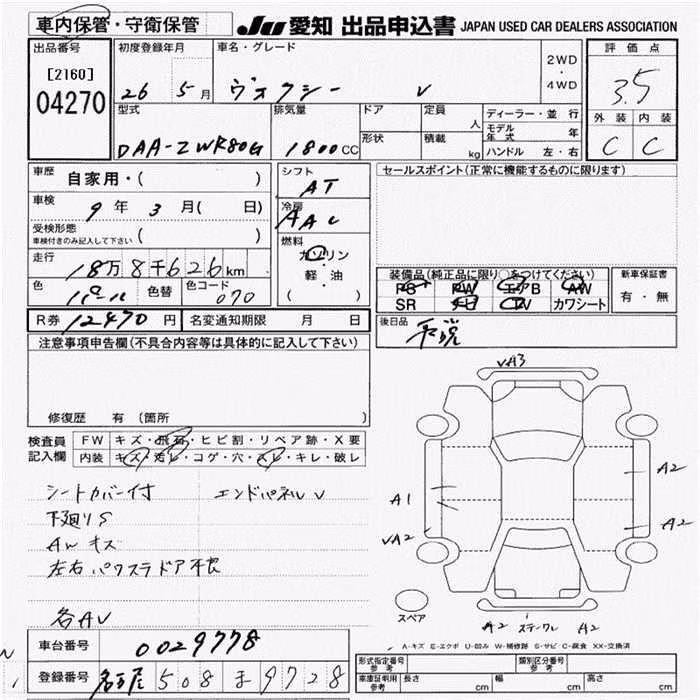 車内保管・守衛保管
JU 愛知 出品申込書 JAPAN USED CAR DEALERS ASSOCIATION
出品番号
[2160]
04270
初度登録年月
26 5月
車名・グレード
ヴォクシー V
2WD
・
4WD
評価点
3.5
外装 内装
C C
型式
DAA-ZWR80G
排気量
1800cc
ドア
形状
定員
人
積載
kg
ディーラー・並行
モデル年式 年
ハンドル 左・右
車歴 自家用・( )
車検 9年 3月( 日)
受検形態
車検付きのみ記入して下さい ( )
走行 18万8千626km
色 パール 色替 色コード 070
R券 12470円 名変通知期限 月 日
シフト AT
冷房 AAC
燃料
ガソリン
・
軽・油
( )
セールスポイント(正常に機能するものに限ります)
装備品(純正品に限り○をつけてください)
PS PW エアB AW
SR ナビ TV カワシート
新車保証書
有・無
後日品
注意事項申告欄(不具合内容等は具体的に記入して下さい)
修復歴 有(箇所 )
検査員記入欄
FW キズ・飛石・ヒビ割・リペア跡・X要
内装 キズ・汚レ・コゲ・穴・スレ・キレ・破レ
シートカバー付 エンドパネルV
下廻りS
AWキズ
左右パワスラドア不良
各AV
車台番号 0029778
登録番号 名古屋 508 ま 9728
VA3
A1
VA2
A2
A2
スペア
A2 A2
A-キズ E-エクボ U-凹み W-補修跡 S-サビ C-腐食 XX-交換済
形式指定番号
参考
類別区分番号
参考
車庫証明用
参考
長さ cm 幅 cm 高さ cm